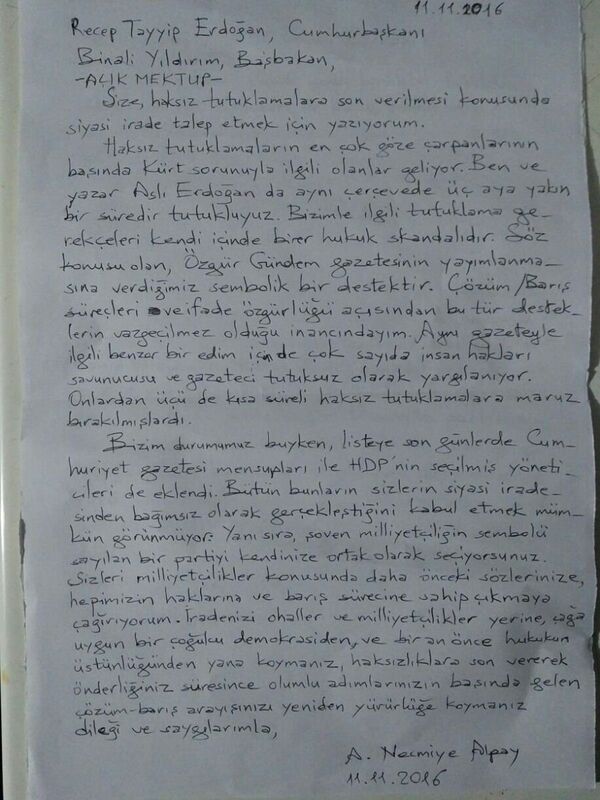 11.11.2016
Recep Tayyip Erdoğan, Cumhurbaşkanı
Binali Yıldırım, Başbakan,
-AÇIK MEKTUP-
Size, haksız tutuklamalara son verilmesi konusunda
siyasi irade talep etmek için yazıyorum.
Haksız tutuklamaların en çok göze çarpanlarının
başında Kürt sorunuyla ilgili olanlar geliyor. Ben ve
yazar Aslı Erdoğan da aynı çerçevede üç aya yakın
bir süredir tutukluyuz. Bizimle ilgili tutuklama ge-
rekçeleri kendi içinde birer hukuk skandalıdır. Söz
konusu olan, Özgür Gündem gazetesinin yayımlanma-
sına verdiğimiz sembolik bir destektir. Çözüm/Barış
süreçleri ve ifade özgürlüğü açısından bu tür destek-
lerin vazgeçilmez olduğu inancındayım. Aynı gazeteyle
ilgili benzer bir edim içinde çok sayıda insan hakları
savunucusu ve gazeteci tutuksuz olarak yargılanıyor.
Onlardan üçü de kısa süreli haksız tutuklamalara maruz
bırakılmışlardı.
Bizim durumumuz buyken, listeye son günlerde Cum-
huriyet gazetesi mensupları ile HDP'nin seçilmiş yöneti-
cileri de eklendi. Bütün bunların sizlerin siyasi irade-
sinden bağımsız olarak gerçekleştiğini kabul etmek müm-
kün görünmüyor. Yanı sıra, şoven milliyetçiliğin sembolü
sayılan bir partiyi kendinize ortak olarak seçiyorsunuz.
Sizleri milliyetçilikler konusunda daha önceki sözlerinize,
hepimizin haklarına ve barış sürecine sahip çıkmaya
çağırıyorum. İradenizi ohaller ve milliyetçilikler yerine, çağa
uygun bir çoğulcu demokrasiden, ve bir an önce hukukun
üstünlüğünden yana koymanız, haksızlıklara son vererek
önderliğiniz süresince olumlu adımlarınızın başında gelen
çözüm-barış arayışınızı yeniden yürürlüğe koymanız
dileği ve saygılarımla,
A. Necmiye Alpay
11.11.2016